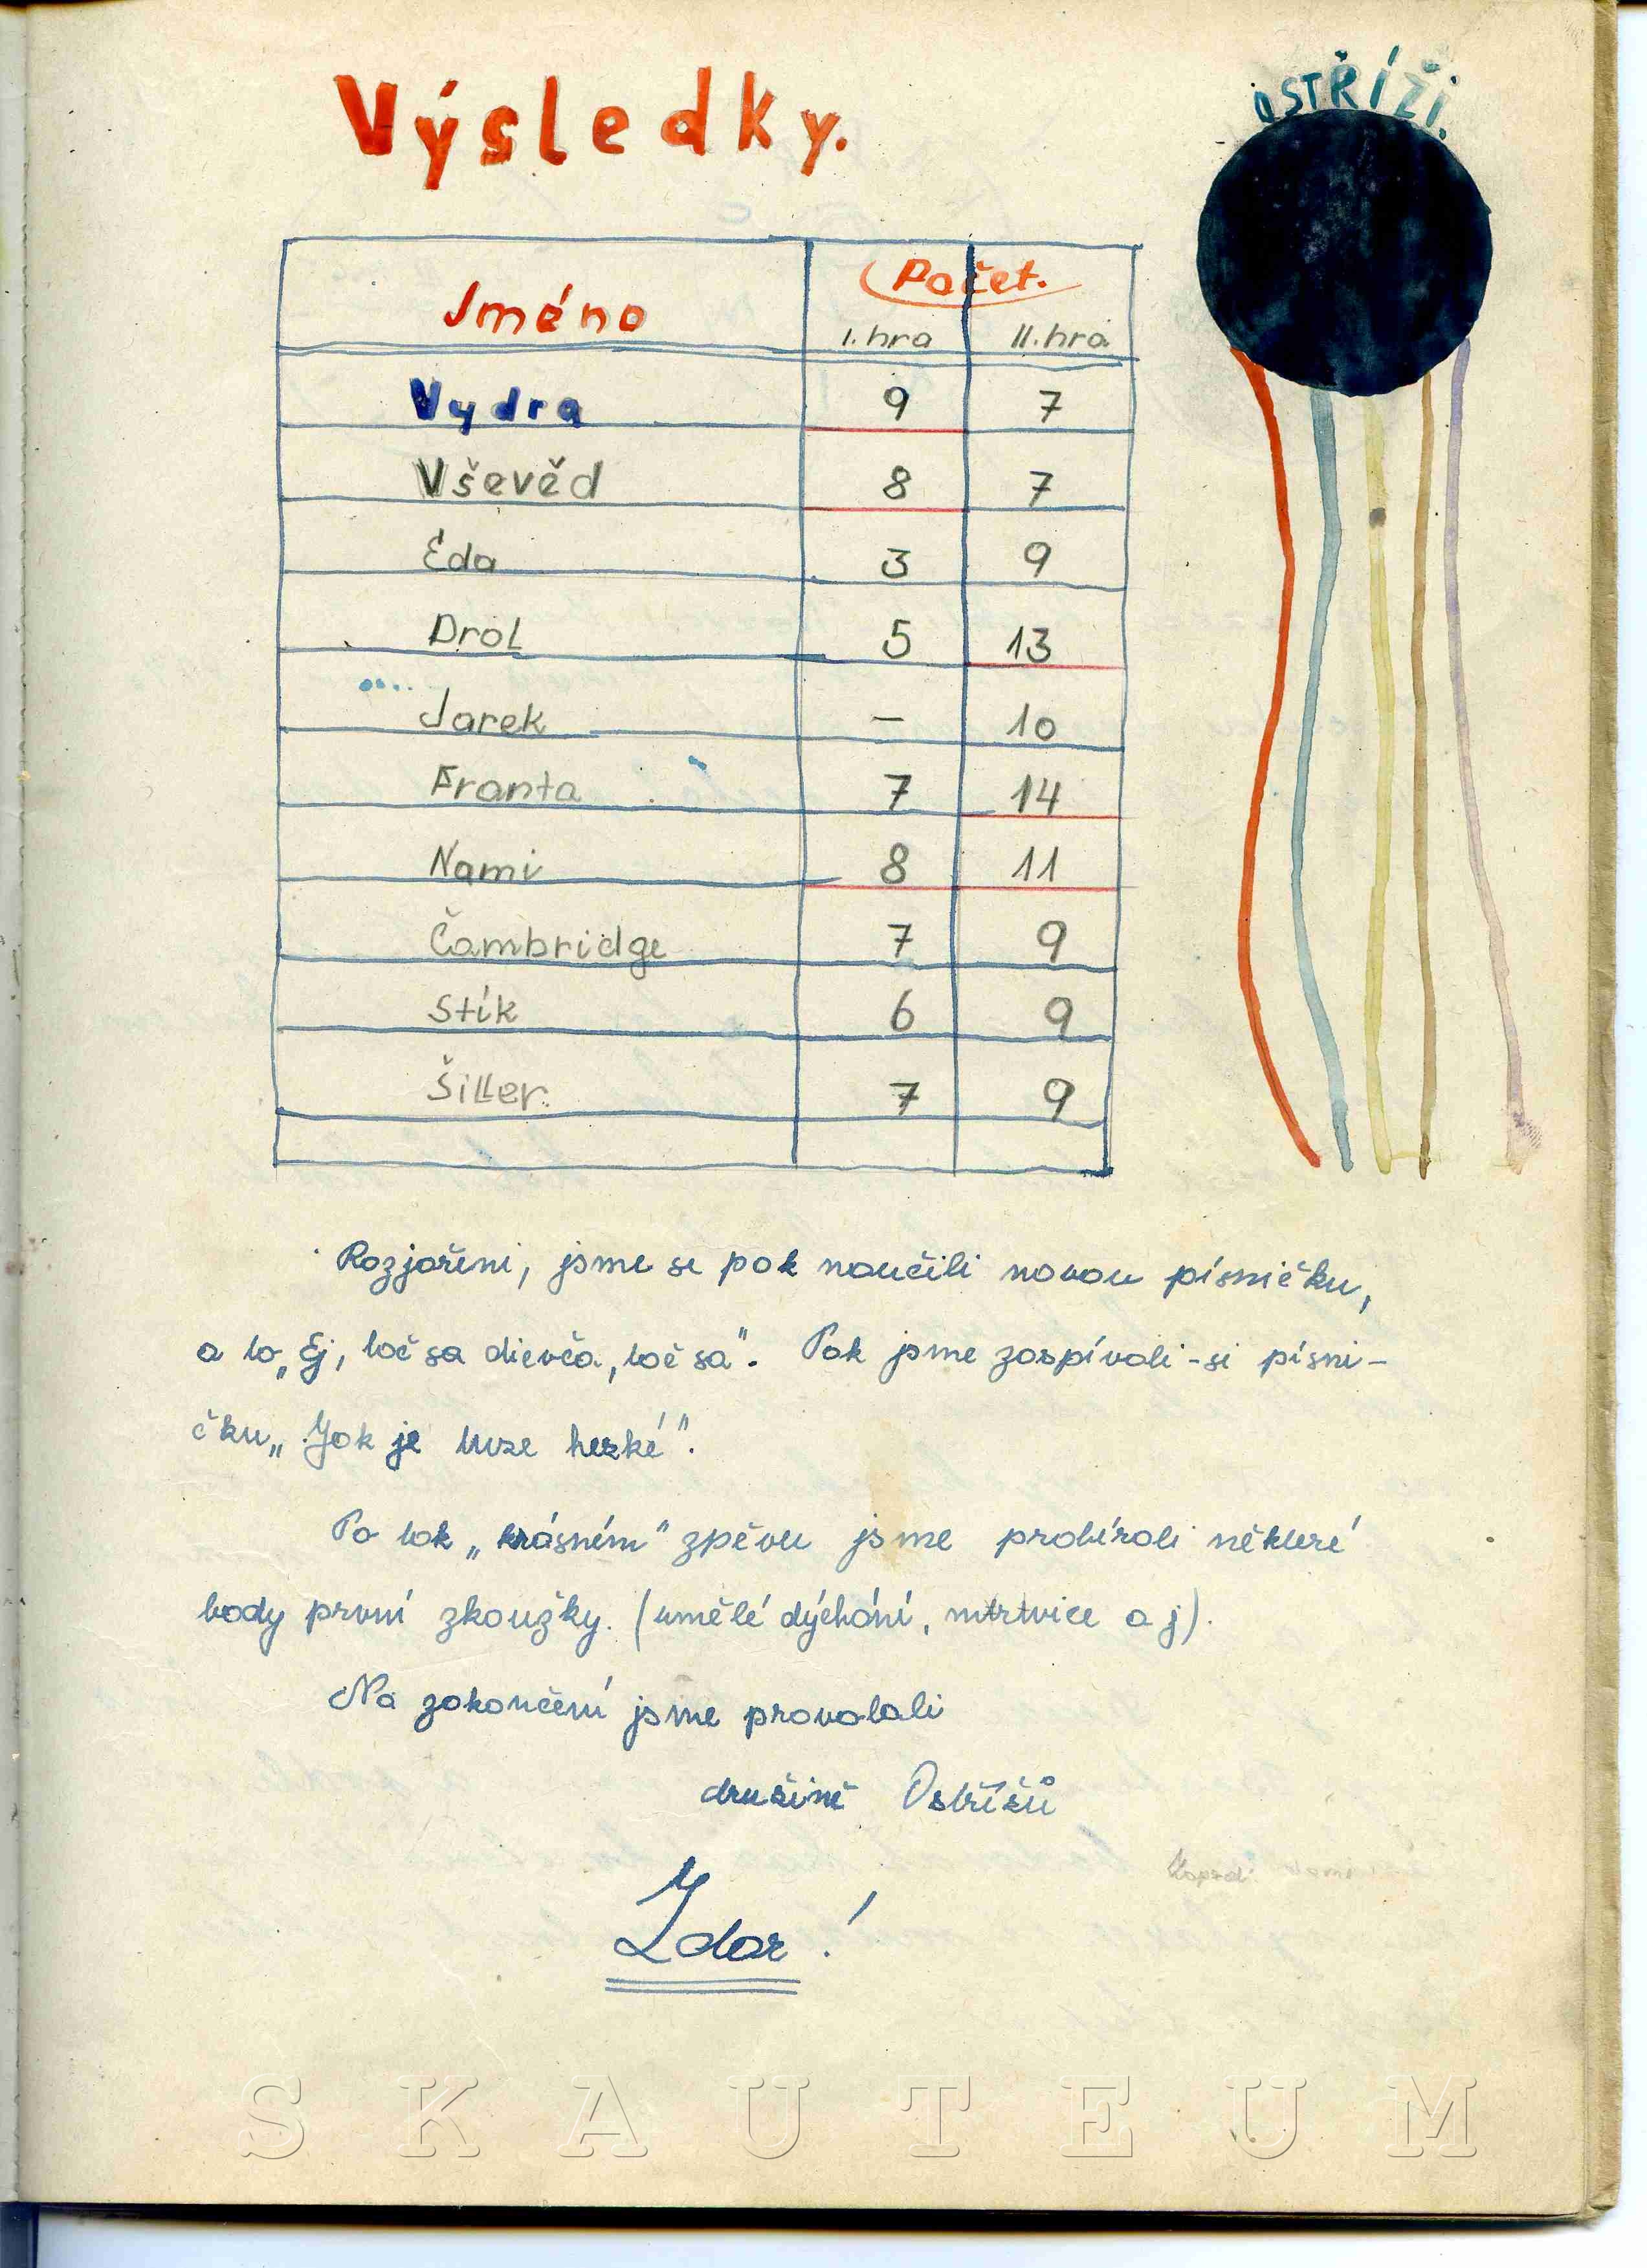 Výsledky.
OSTŘÍŽI.
Jméno Počet.
I. hra II. hra
Vydra 9 7
Vševěd 8 7
Eda 3 9
Drol 5 13
Jarek – 10
Franta 7 14
Nami 8 11
Čambridge 7 9
Stík 6 9
Šiller. 7 9
Rozjařeni, jsme se pak naučili novou písničku,
a to „Ej, toč sa dievča, toč sa". Pak jsme zaspívali-si písni-
čku „Jak je tuze hezké".
Po tak „krásném" zpěvu jsme probírali některé
body první zkoužky. (umělé dýchání, mrtvice a j).
Na zakončení jsme provolali
družině Ostřížů
Zdar!
Zapsal:
SKAUTEUM